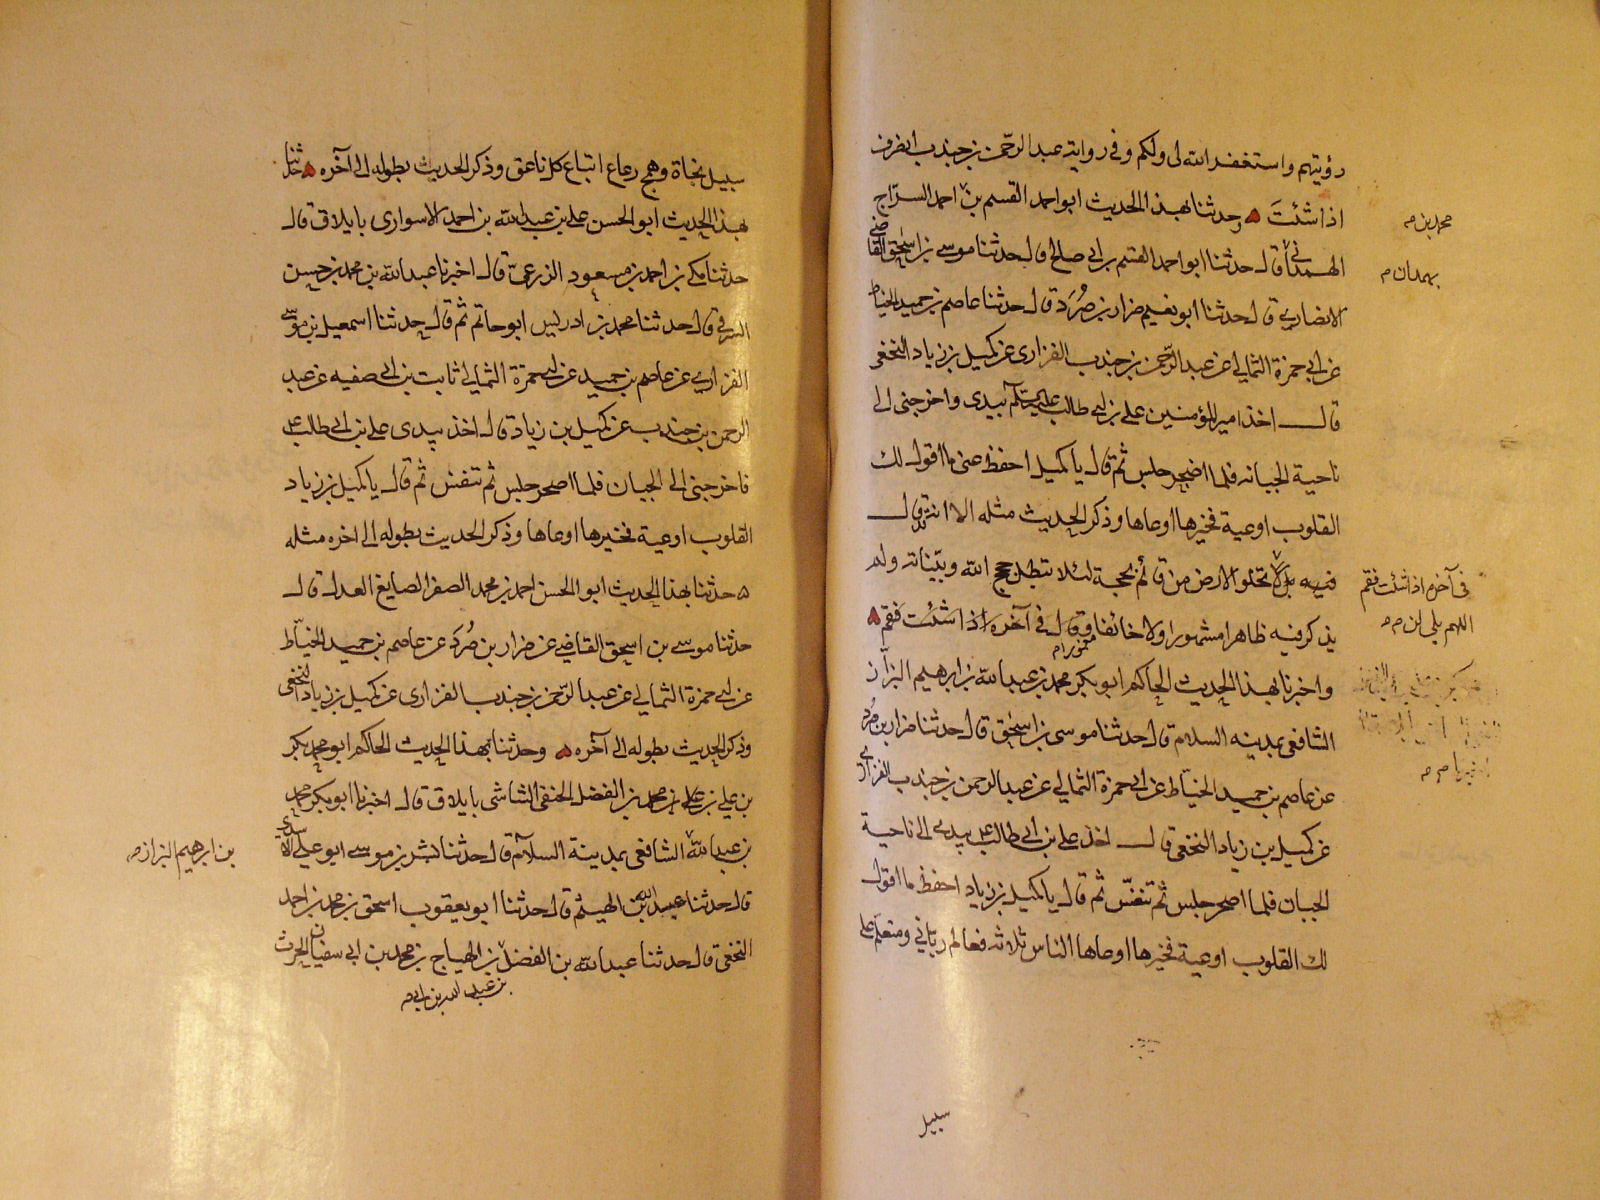 رؤيتهم واستغفر الله لى ولكم وفى رواية عبد الرحمن بن جندب انصرف
اذا شئت وحدثنا بهذا الحديث ابو احمد القسم بن احمد السراج
الهمدانى قال حدثنا ابو احمد القسم بن ابى صالح قال حدثنا موسى بن اسحق القاضى
الانصارى قال حدثنا ابو نعيم ضرار بن صُرَد قال حدثنا عاصم بن حميد الحناط
عن ابى حمزة الثمالى عن عبد الرحمن بن جندب الفزارى عن كميل بن زياد النخعى
قال اخذ امير المؤمنين على بن ابى طالب بيدى واخرجنى الى
ناحية الجبانه فلما اصحر جلس ثم قال يا كميل احفظ عنى ما اقول لك
القلوب اوعية فخيرها اوعاها وذكر الحديث مثله الا انه قال
فيه لا تخلو الارض من قائم بحجة لئلا تبطل حجج الله وبيناته ولم
يذكر فيه ظاهرا مشهورا او خائفا مغمورا وقال فى آخره اذا شئت فقم
واخبرنا بهذا الحديث الحاكم ابو بكر محمد بن عبد الله بن ابرهيم البزاز
الشافعى بمدينه السلام قال حدثنا موسى بن اسحق قال حدثنا ضرار بن صُرَد
عن عاصم بن حميد الحناط عن ابى حمزة الثمالى عن عبد الرحمن بن جندب الفزارى
عن كميل بن زياد النخعى قال اخذ على بن ابى طالب بيدى الى ناحية
الجبان فلما اصحر جلس ثم تنفس ثم قال يا كميل بن زياد احفظ ما اقول
لك القلوب اوعية فخيرها اوعاها الناس ثلاثه فعالم ربانى ومتعلم على
سبيل
محمد بن
بهمدان
فى آخره اذا شئت فقم
اللهم بلى لن
سبيل نجاة وهمج رعاع اتباع كل ناعق وذكر الحديث بطوله الى آخره حدثنا
بهذا الحديث ابو الحسن على بن عبد الله بن احمد الاسوارى بايلاق قال
حدثنا مكى بن احمد بن مسعود الزرعى قال اخبرنا عبد الله بن محمد بن حسن
قال حدثنا محمد بن ادريس ابو حاتم ثم قال حدثنا اسمعيل بن موسى
الفزارى عن عاصم بن حميد عن ابى حمزة الثمالى ثابت بن ابى صفيه عن عبد
الرحمن بن جندب عن كميل بن زياد قال اخذ بيدى على بن ابى طالب
فاخرجنى الى الجبان فلما اصحر جلس ثم تنفس ثم قال يا كميل بن زياد
القلوب اوعية فخيرها اوعاها وذكر الحديث بطوله الى اخره مثله
حدثنا بهذا الحديث ابو الحسن احمد بن محمد الصقر الصايغ العدل قال
حدثنا موسى بن اسحق القاضى عن ضرار بن صُرَد عن عاصم بن حميد الحناط
عن ابى حمزة الثمالى عن عبد الرحمن بن جندب الفزارى عن كميل بن زياد النخعى
وذكر الحديث بطوله الى آخره وحدثنا بهذا الحديث الحاكم ابو محمد بكر
بن على بن محمد بن الفضل الحنفى الشاشى بايلاق قال اخبرنا ابو بكر محمد
بن عبد الله الشافعى بمدينة السلام قال حدثنا بشر بن موسى ابو على الاسدى
قال حدثنا عبيد الله بن الهيثم قال حدثنا ابو يعقوب اسحق بن محمد بن احمد
النخعى قال حدثنا عبد الله بن الفضل بن الهياج بن محمد بن ابى سفيان الحرث
بن ابرهيم البزاز